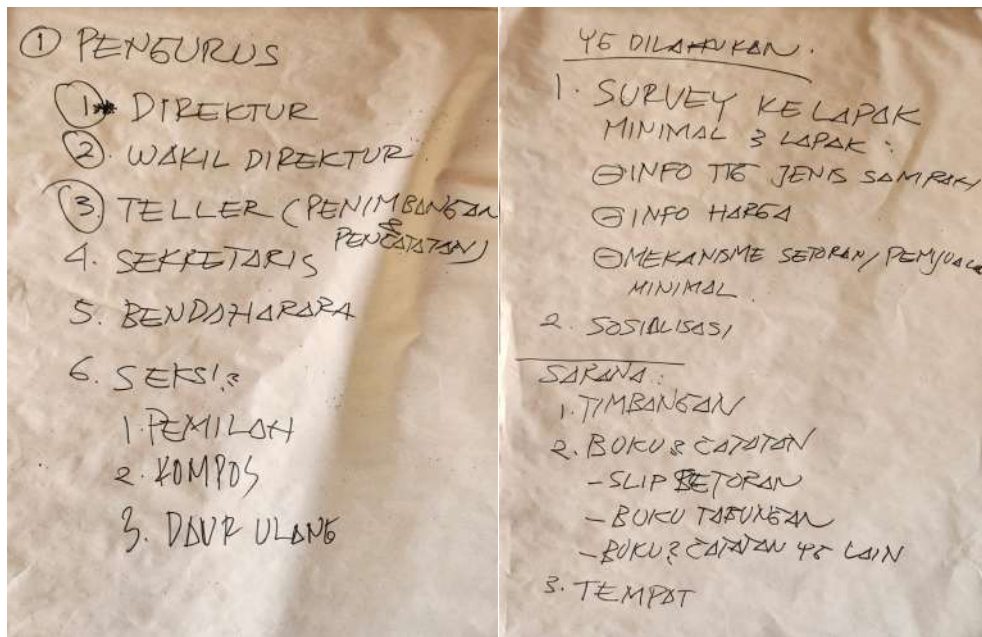 ① PENGURUS
① DIREKTUR
②. WAKIL DIREKTUR
③. TELLER (PENIMBANGAN
& PENCATATAN)
4. SEKRETARIS
5. BENDAHARARA
6. SEKSI2
1. PEMILAH
2. KOMPOS
3. DAUR ULANG
YG DILAKUKAN.
1. SURVEY KE LAPAK
MINIMAL 3 LAPAK:
- INFO TTG JENIS SAMPAH
- INFO HARGA
- MEKANISME SETORAN/PENJUALA
MINIMAL.
2. SOSIALISASI
SARANA:
1. TIMBANGAN
2. BUKU2 CATATAN
- SLIP SETORAN
- BUKU TABUNGAN
- BUKU2 CATATAN YG LAIN
3. TEMPAT